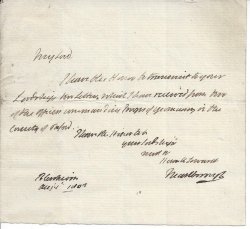 My Lord
I have the Honor to transmit to your
Lordship two letters, which I have received from two
of the officers commanding Troops of Yeomanry in the
County of Oxford.
I have the Honor to be
your Lordship's
most
Humble Servant
Marlborough
Blenheim